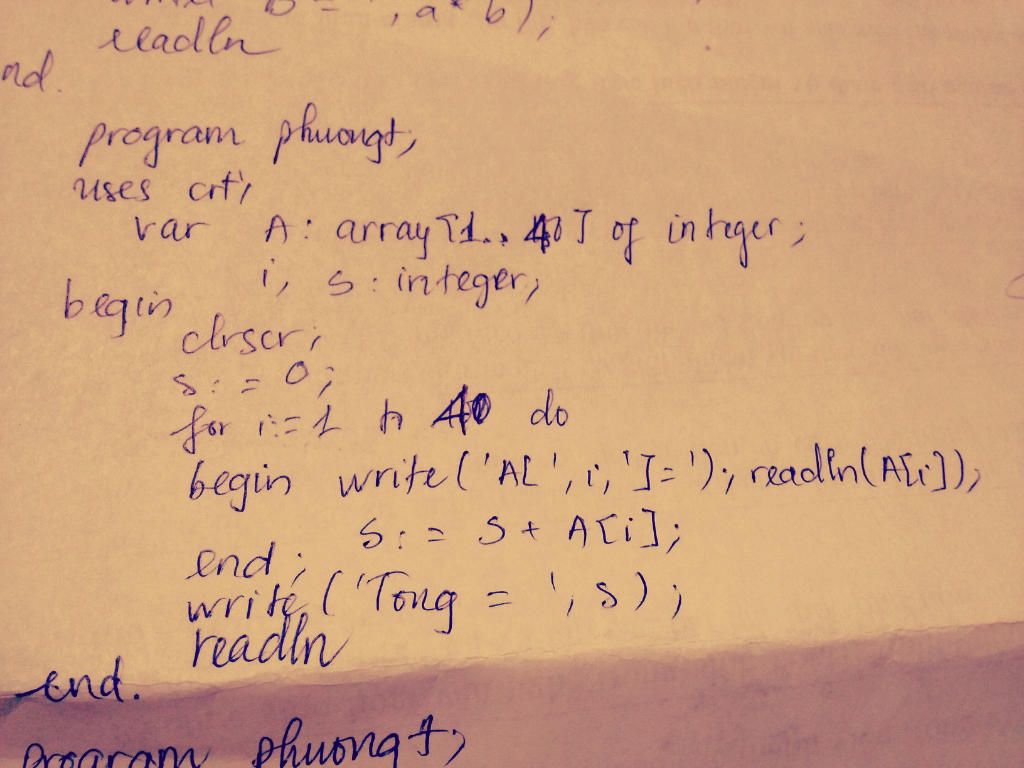 , a * b);
readln
nd.
program phuongt;
uses crt;
var A: array [1.. 40] of integer;
i, s: integer;
begin
clrscr;
s: = 0;
for i:=1 to 40 do
begin write('A[', i, ']='); readln(A[i]);
s: = s + A[i];
end;
write ('Tong = ', s);
readln
end.
program phuongt;